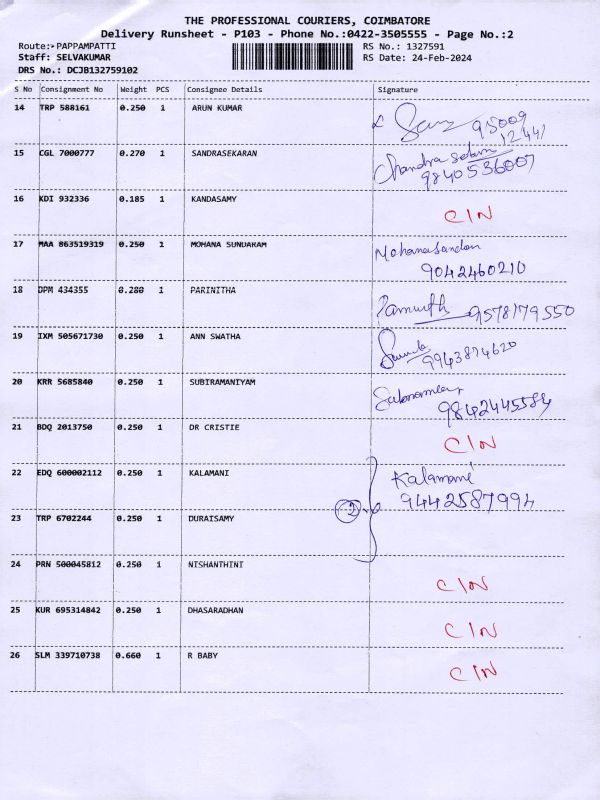 THE PROFESSIONAL COURIERS, COIMBATORE
Delivery Runsheet - P103 - Phone No.:0422-3505555 - Page No.:2
Route:-PAPPAMPATTI RS No.: 1327591
Staff: SELVAKUMAR RS Date: 24-Feb-2024
DRS No.: DCJB132759102
S No Consignment No Weight PCS Consignee Details Signature
14 TRP 588161 0.250 1 ARUN KUMAR 95009
12441
15 CGL 7000777 0.270 1 SANDRASEKARAN Chandra
9840536007
16 KDI 932336 0.185 1 KANDASAMY CIN
17 MAA 863519319 0.250 1 MOHANA SUNDARAM Mohanasandan
9042460210
18 DPM 434355 0.280 1 PARINITHA 9578179550
19 IXM 505671730 0.250 1 ANN SWATHA 9943874620
20 KRR 5685840 0.250 1 SUBIRAMANIYAM
9842445584
21 BDQ 2013750 0.250 1 DR CRISTIE CIN
22 EDQ 600002112 0.250 1 KALAMANI Kalamani
2 9442587994
23 TRP 6702244 0.250 1 DURAISAMY
24 PRN 500045812 0.250 1 NISHANTHINI CIN
25 KUR 695314842 0.250 1 DHASARADHAN CIN
26 SLM 339710738 0.660 1 R BABY CIN